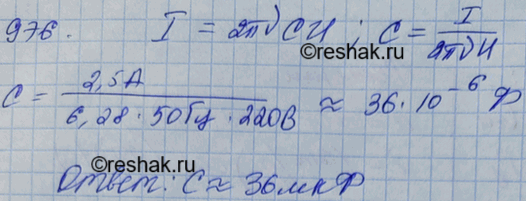 976. I = 2πνCU ; C = I / 2πνU
©reshak.ru
C = 2,5А / 6,28 · 50Гц · 220В ≈ 36 · 10⁻⁶ Ф
©reshak.ru
Ответ: C ≈ 36мкФ